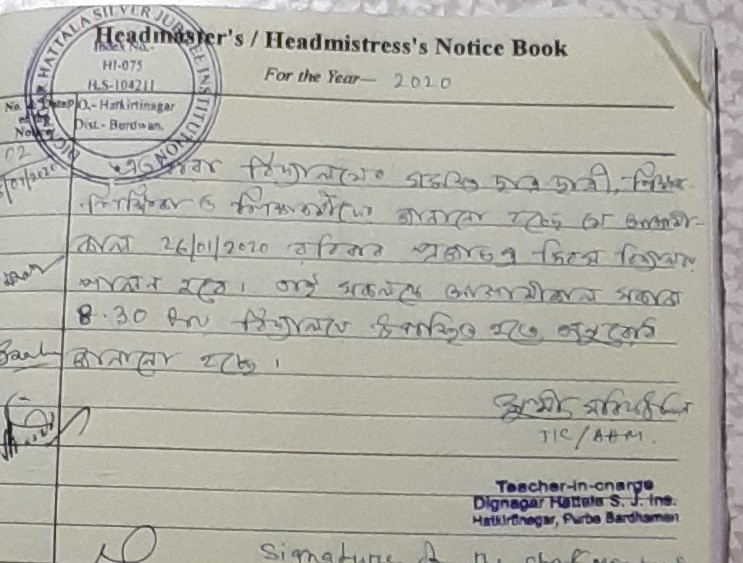 Headmaster's / Headmistress's Notice Book
For the Year— 2020
HATTALA SILVER JUBILEE INSTITUTION
Index No.-
HI-075
H.S-104211
P.O.- Hatkirtinagar
Dist.- Burdwan.
02
বিদ্যালয়ের সমস্ত ছাত্র ছাত্রী, শিক্ষক
শিক্ষিকা ও শিক্ষাকর্মীদের জানানো হচ্ছে যে আগামী
কাল 26/01/2020 রবিবার প্রজাতন্ত্র দিবস বিদ্যালয়ে
পালন হবে। তাই সকলকে আগামীকাল সকাল
8.30 বিদ্যালয়ে উপস্থিত হতে অনুরোধ
জানানো হচ্ছে।
TIC/AHM.
Teacher-in-charge
Dignagar Hattala S. J. Ins.
Hatkirtinagar, Purba Bardhaman
Signature